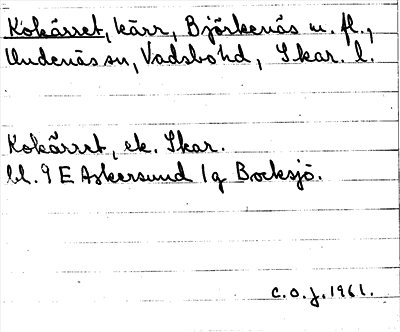 Kokärret, kärr, Björkenäs m. fl.,
Undenäs sn, Vadsbo hd, Skar. l.
Kokärret, ek. Skar.
bl. 9 E Askersund 1 g Bocksjö.
C.O.J. 1961.